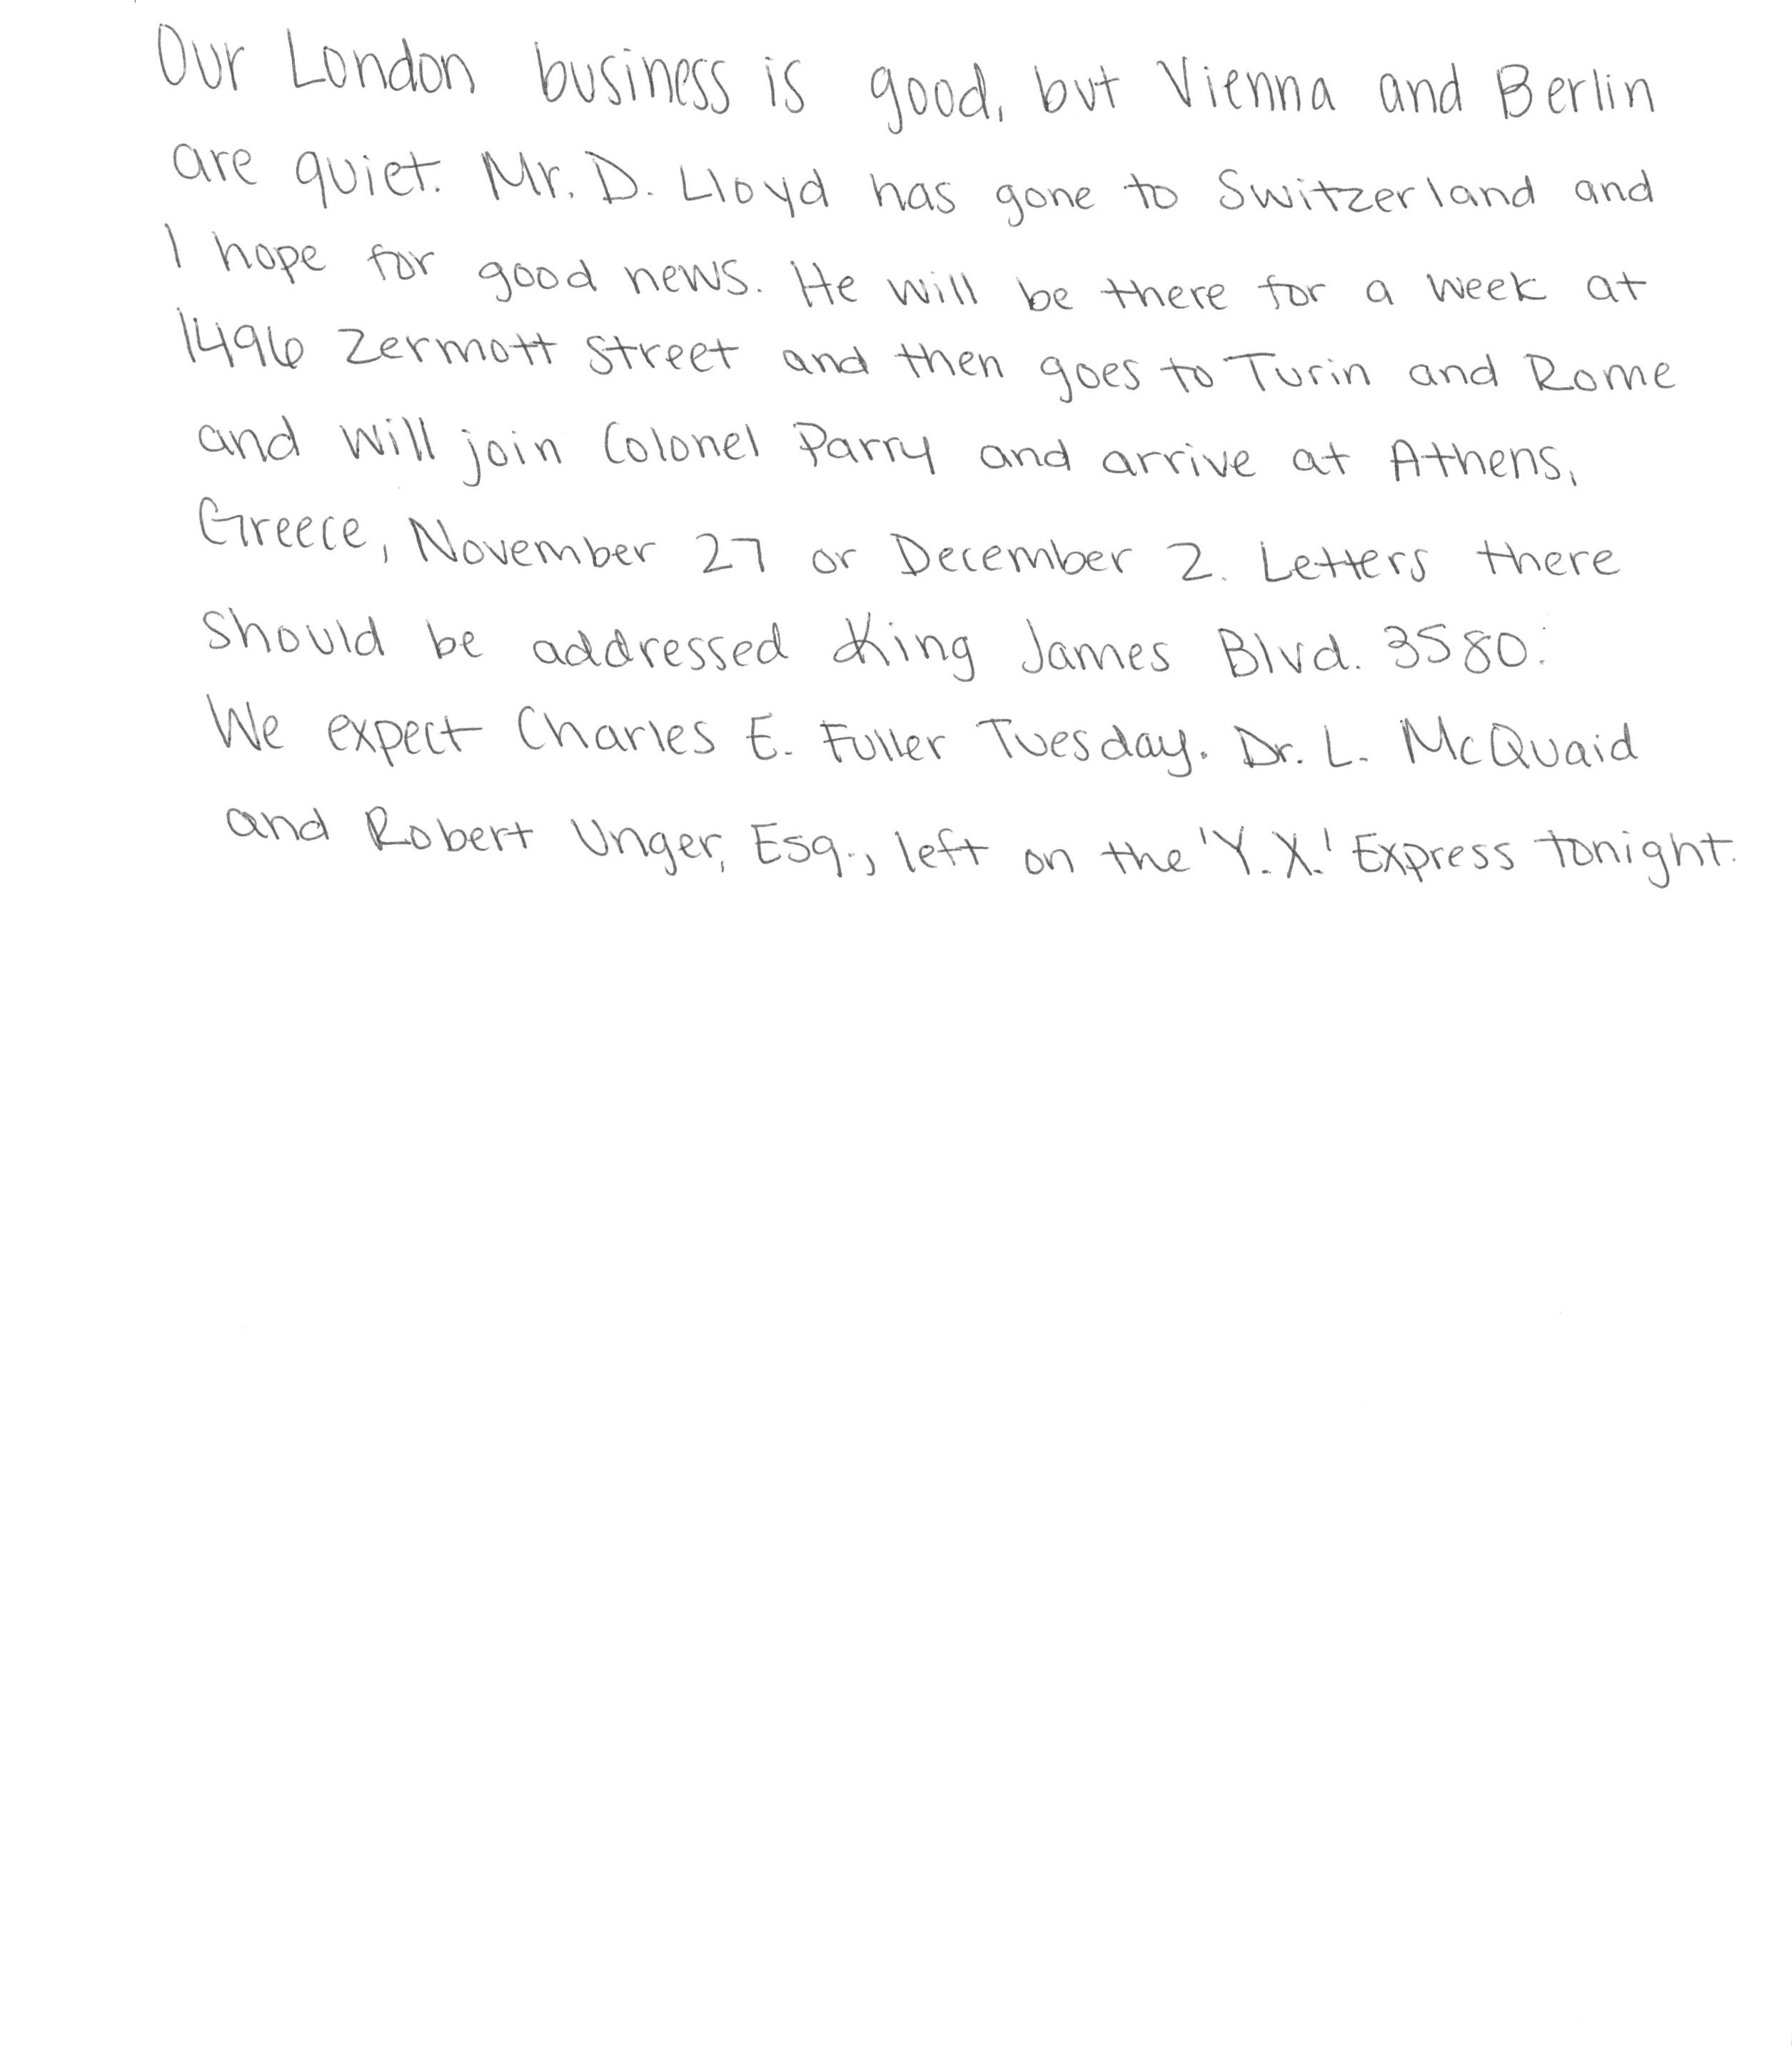 Our London business is good, but Vienna and Berlin
are quiet. Mr. D. Lloyd has gone to Switzerland and
I hope for good news. He will be there for a week at
1496 Zermott Street and then goes to Turin and Rome
and will join Colonel Parry and arrive at Athens,
Greece, November 27 or December 2. Letters there
should be addressed King James Blvd. 3580.
We expect Charles E. Fuller Tuesday. Dr. L. McQuaid
and Robert Unger, Esq., left on the 'Y.X.' Express tonight.